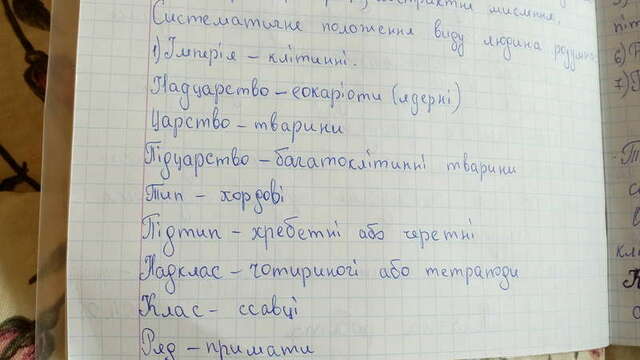 абстрактне мислення.
Систематичне положення виду людина розумна
1) Імперія – клітинні.
Надцарство – еокаріоти (ядерні)
Царство – тварини
Підцарство – багатоклітинні тварини
Тип – хордові
Підтип – хребетні або черетні
Надклас – чотириногі або тетраподи
Клас – ссавці
Ряд – примати
піт
6)
7)
кл